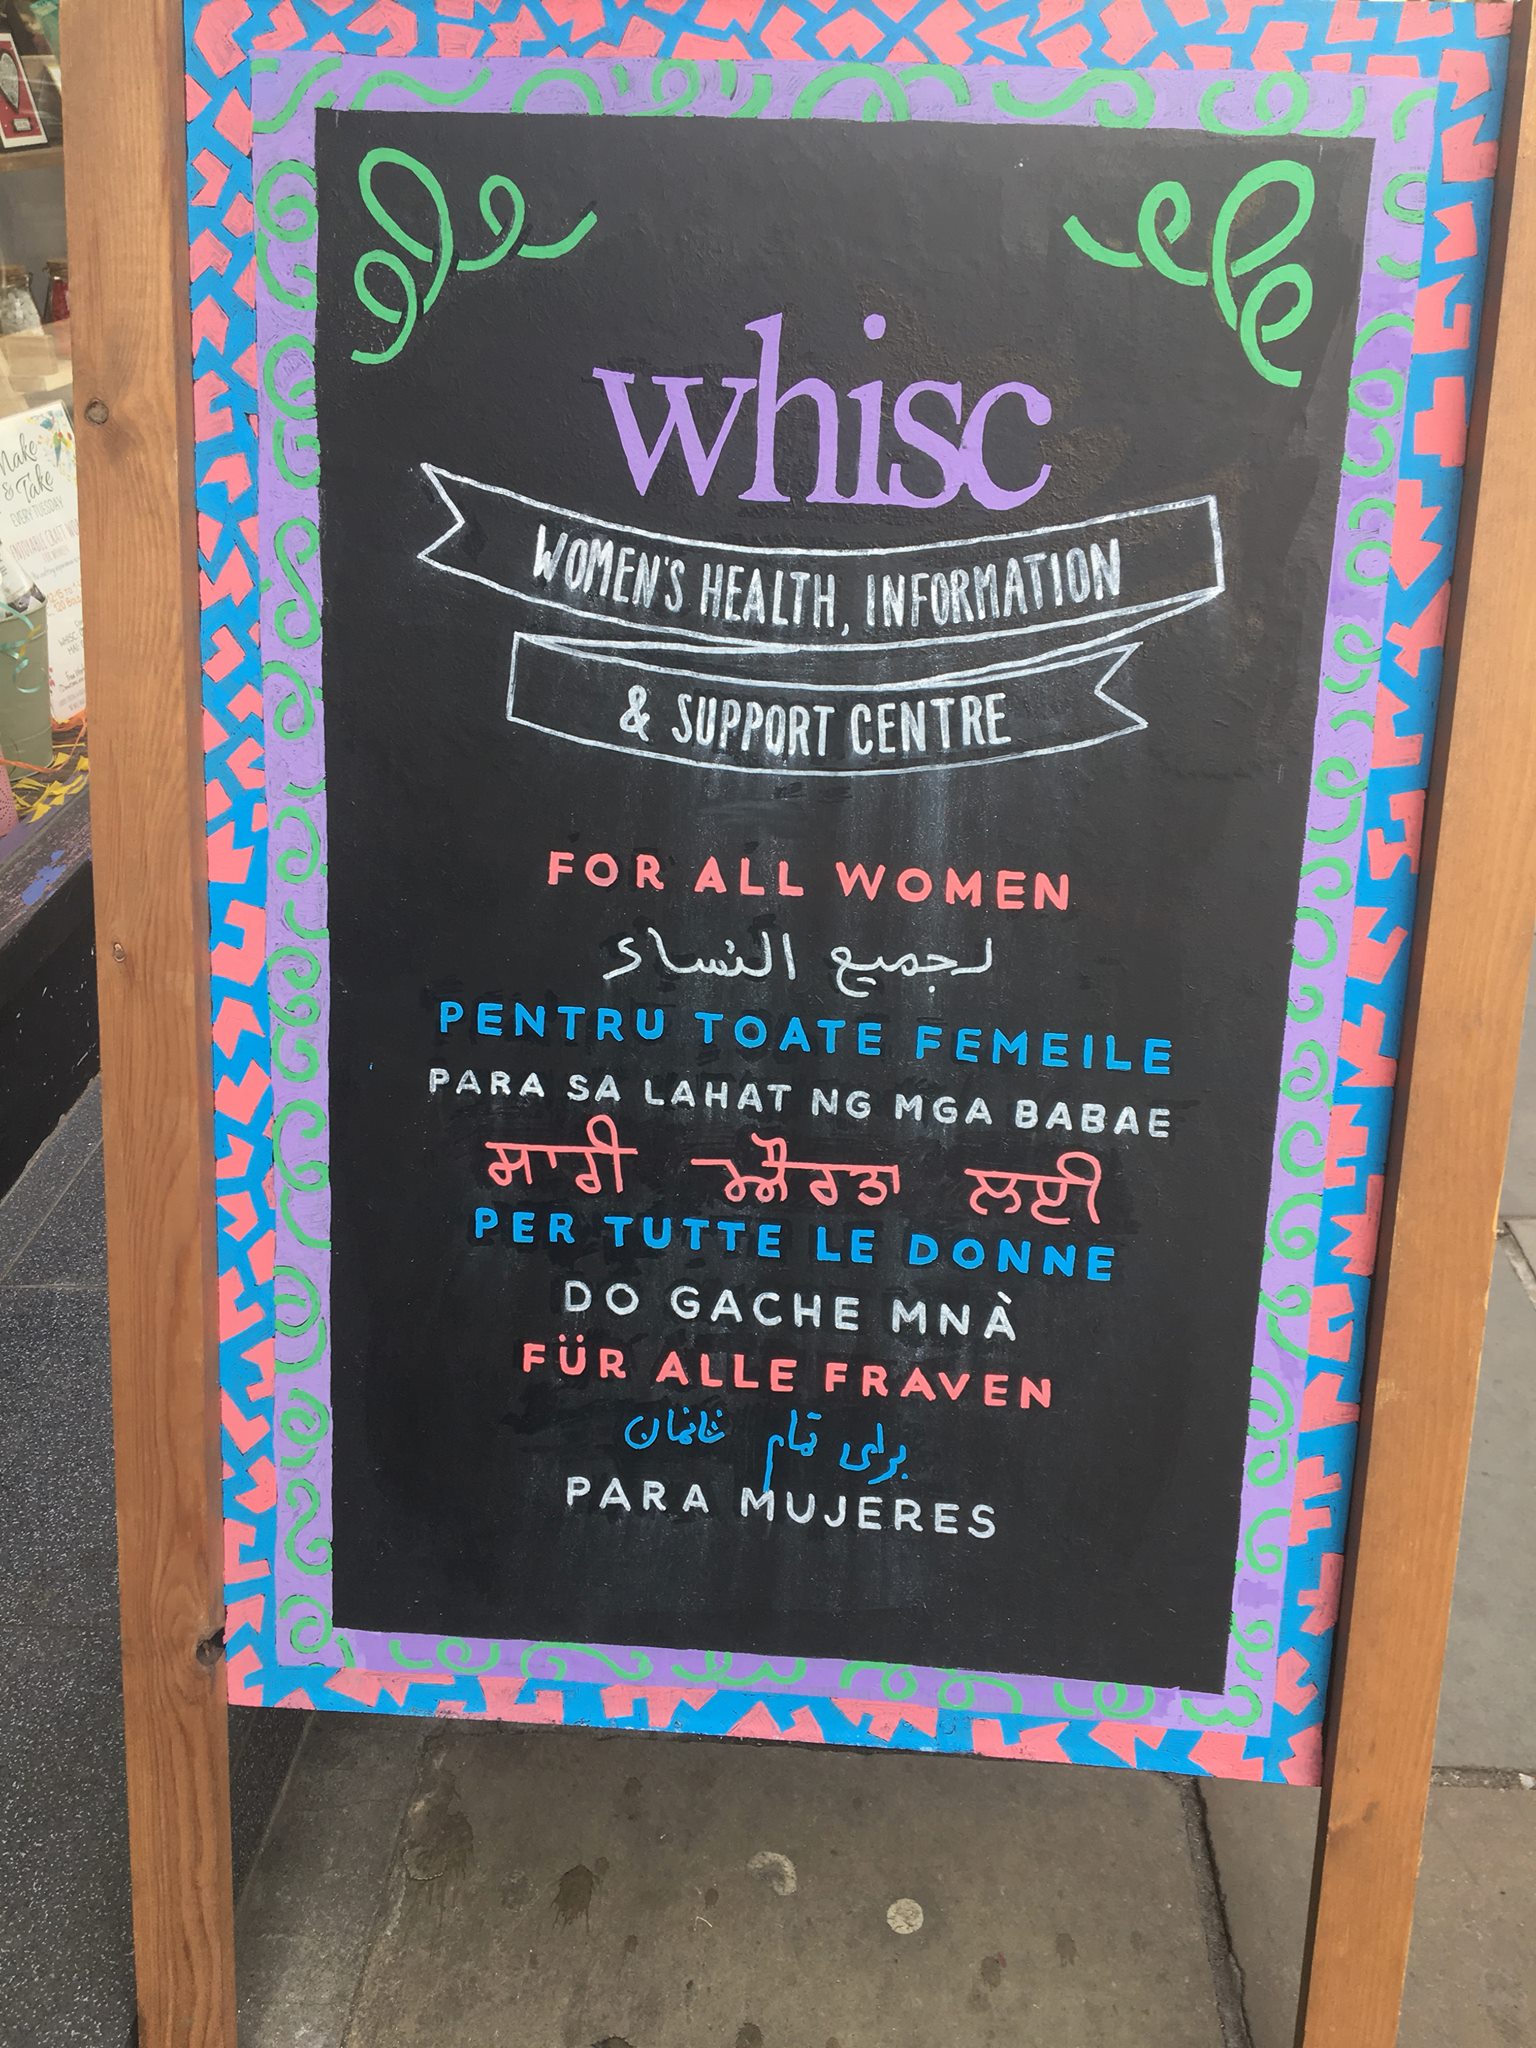 whisc
WOMEN'S HEALTH, INFORMATION
& SUPPORT CENTRE
FOR ALL WOMEN
لجميع النساء
PENTRU TOATE FEMEILE
PARA SA LAHAT NG MGA BABAE
ਸਾਰੀ ਔਰਤਾ ਲਈ
PER TUTTE LE DONNE
DO GACHE MNÀ
FÜR ALLE FRAVEN
برای تمام خانمان
PARA MUJERES
Make
& Take
EVERY TUESDAY